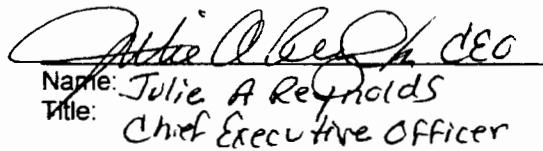 Julie A Reynolds CEO
Name: Julie A Reynolds
Title: Chief Executive Officer